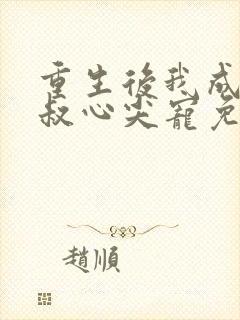 重生後我成
叔心尖寵免
趙順